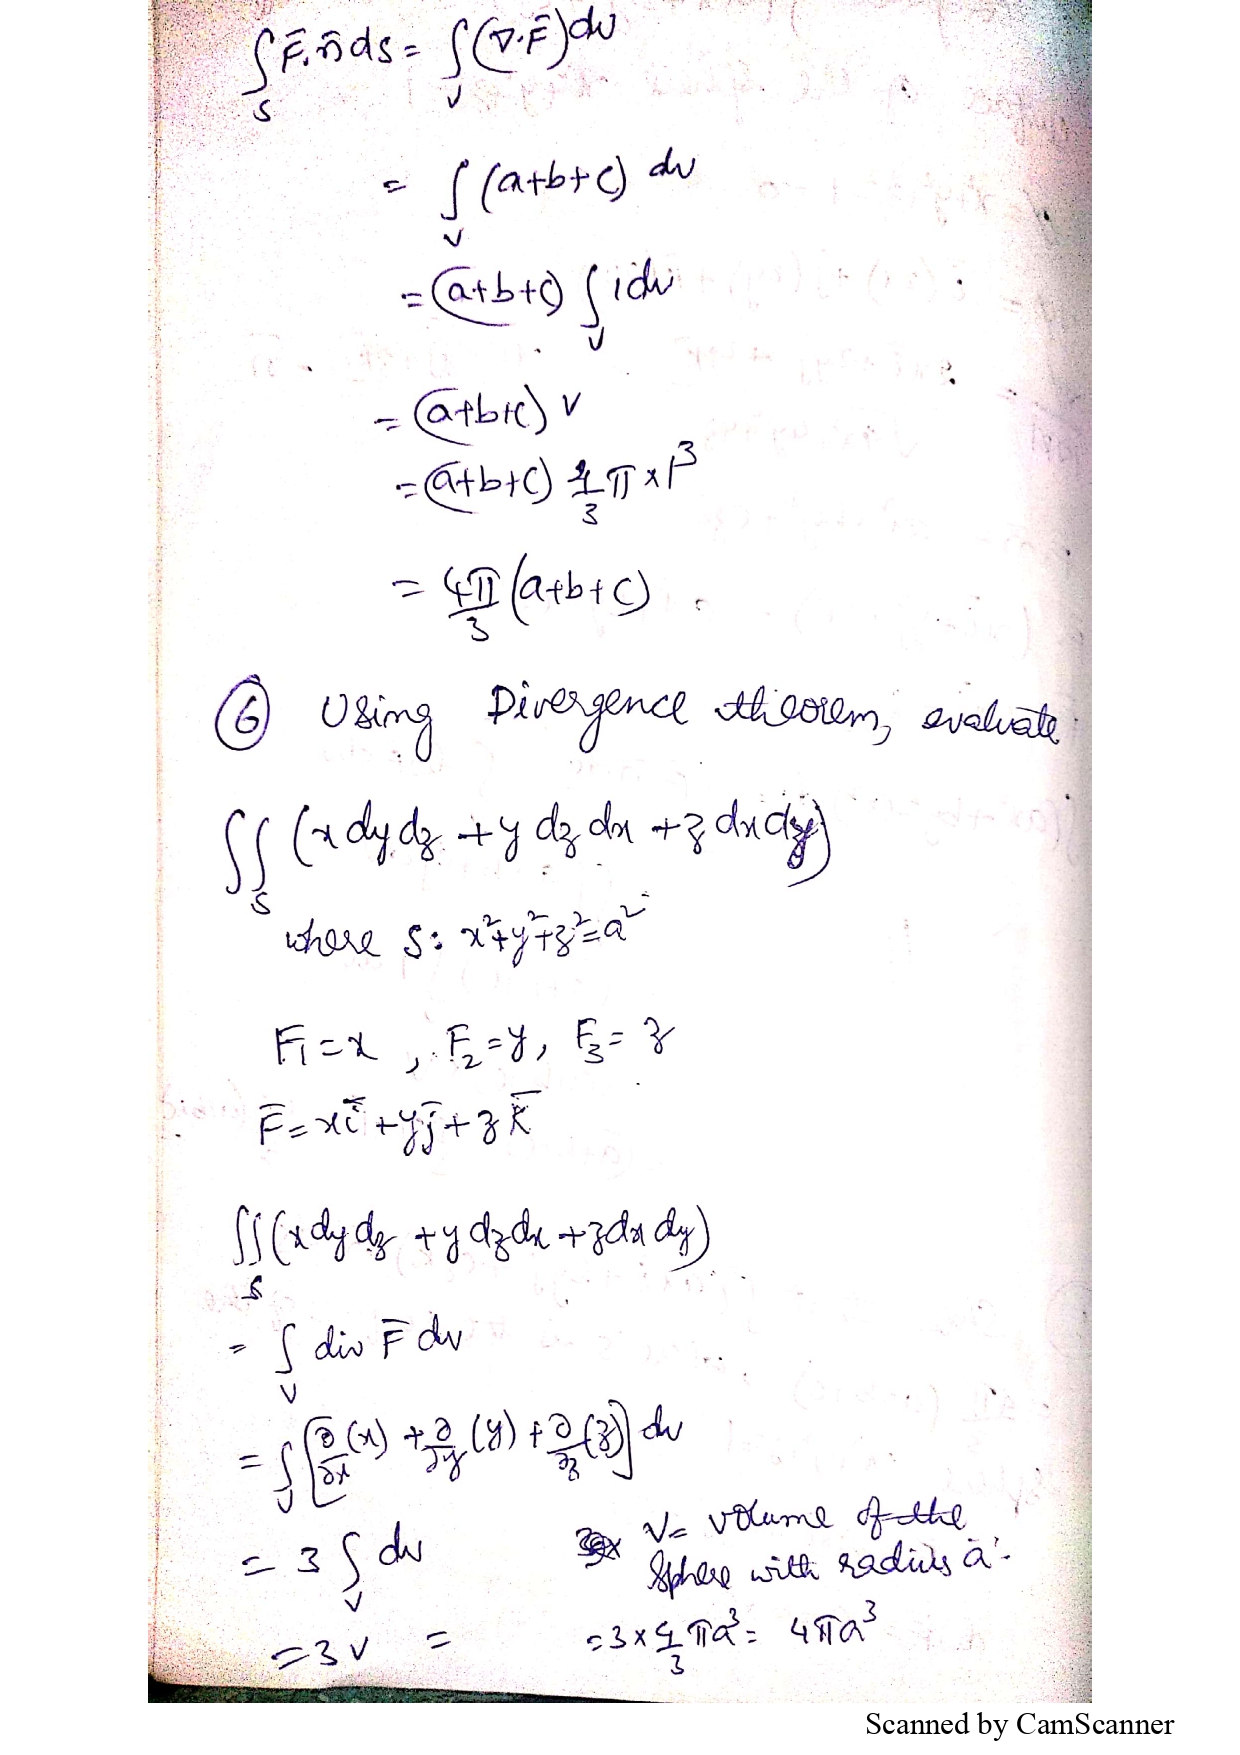 ∫_S F̄.n̄ ds = ∫_V (∇·F̄) dv
= ∫_V (a+b+c) dv
= (a+b+c) ∫_V 1 dv
= (a+b+c) V
= (a+b+c) 4/3 π × 1³
= 4π/3 (a+b+c)
⑥ Using Divergence theorem, evaluate
∬_S (x dy dz + y dz dx + z dx dy)
where S: x²+y²+z²=a²
F₁=x , F₂=y, F₃=z
F̄ = xī + yj̄ + zk̄
∬_S (x dy dz + y dz dx + z dx dy)
= ∫_V div F̄ dv
= ∫_V [∂/∂x (x) + ∂/∂y (y) + ∂/∂z (z)] dv
= 3 ∫_V dv V= volume of the
Sphere with radius 'a'.
= 3V = = 3 × 4/3 πa³ = 4πa³
Scanned by CamScanner